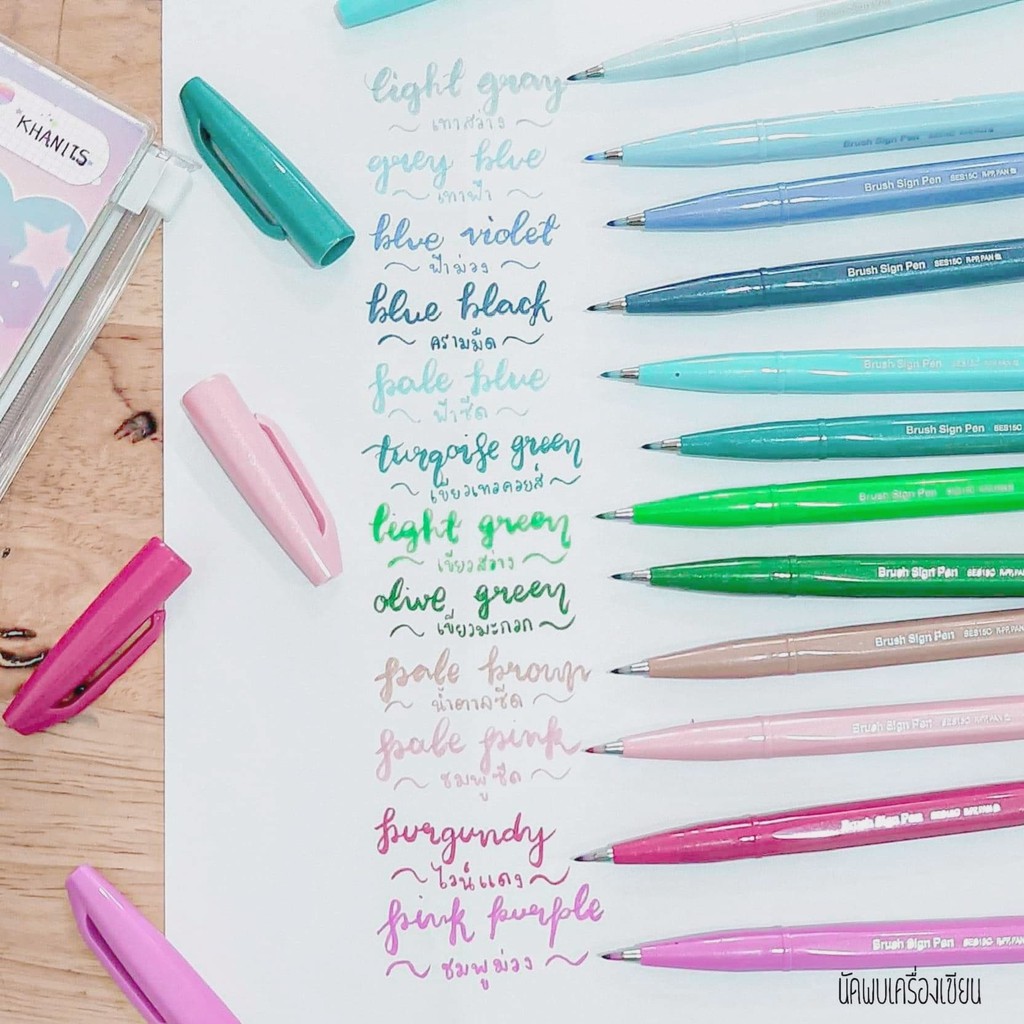 KHANITS
light gray
เทาสว่าง
grey blue
เทาฟ้า
Brush Sign Pen
blue violet
ฟ้าม่วง
Brush Sign Pen SES15C
blue black
ครามมืด
Brush Sign Pen SES15C
pale blue
ฟ้าซีด
Brush Sign Pen
turqoise green
เขียวเทอคอยส์
Brush Sign Pen SES15C
light green
เขียวสว่าง
Brush Sign Pen
olive green
เขียวมะกอก
Brush Sign Pen SES15C
pale brown
น้ำตาลซีด
Brush Sign Pen SES15C
pale pink
ชมพูซีด
Brush Sign Pen SES15C
burgundy
ไวน์แดง
Brush Sign Pen SES15C
pink purple
ชมพูม่วง
Brush Sign Pen SES15C
นัดพบเครื่องเขียน